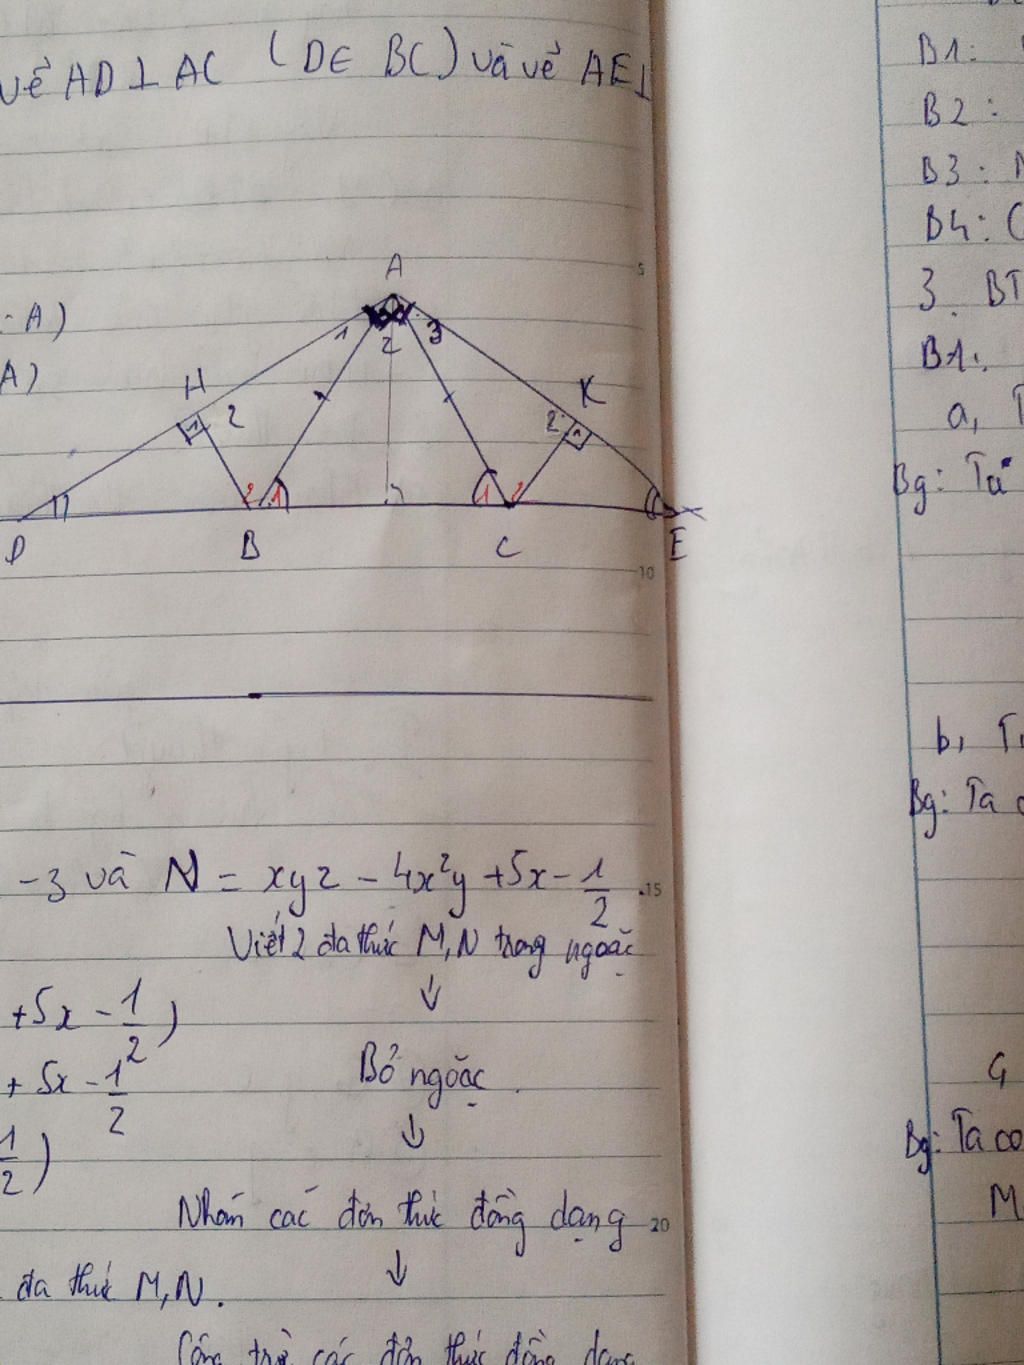 vẽ AD ⊥ AC (D ∈ BC) và vẽ AE ⊥
: A)
A)
A
1 2 3
H 2
K 2 1
1 2 1 1 2
D B C E
5
10
-3 và N = xyz - 4x²y + 5x - 1/2
15
Viết 2 đa thức M, N trong ngoặc
↓
+5x - 1/2)
Bỏ ngoặc
+ 5x - 1/2
↓
1/2)
Nhóm các đơn thức đồng dạng
20
↓
đa thức M, N.
Cộng trừ các đơn thức đồng dạng
B1:
B2:
B3:
B4:
3. BT
B1.
a,
Bg: Ta
b,
Bg: Ta
G
Bg: Ta có
M